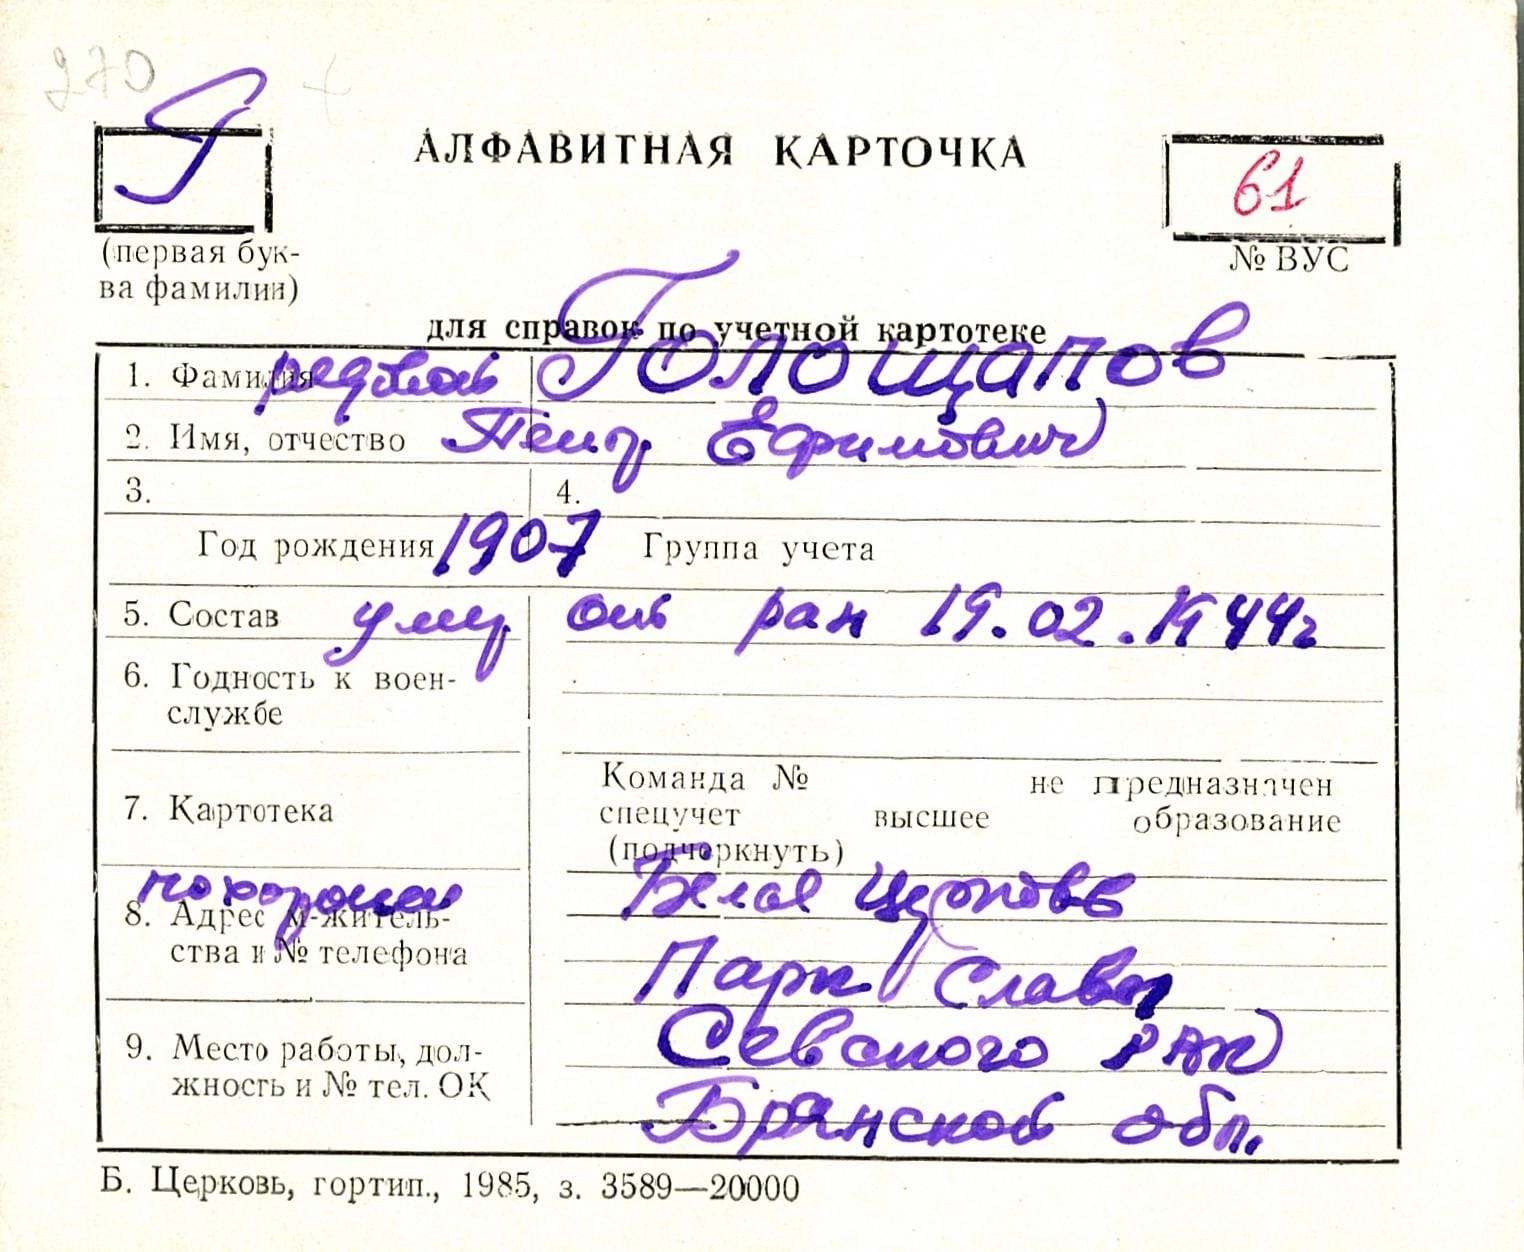 270 +
Г
АЛФАВИТНАЯ КАРТОЧКА
61
(первая бук-
ва фамилии)
№ ВУС
для справок по учетной картотеке
1. Фамилия рядовой Голощапов
2. Имя, отчество Петр Ефимович
3. 4.
Год рождения 1907 Группа учета
5. Состав умер от ран 19.02.1944г
6. Годность к воен-
службе
7. Картотека
Команда № не предназначен
спецучет высшее образование
(подчеркнуть)
похоронен Белая Церковь
8. Адрес м-житель-
ства и № телефона
Парк Славы
9. Место работы, дол-
жность и № тел. ОК
Севского р-на
Брянской обл.
Б. Церковь, гортип., 1985, з. 3589—20000